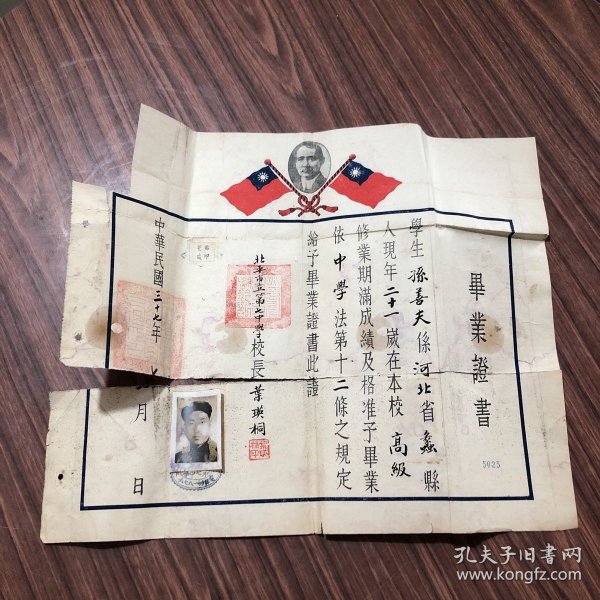 畢業證書
學生孫善夫係河北省蠡縣
人現年二十一歲在本校高級
修業期滿成績及格准予畢業
依中學法第十二條之規定
給予畢業證書此證
北平市立第七中學校長葉瑛桐
中華民國三十七年
月
日
5025
孔夫子旧书网
www.kongfz.com